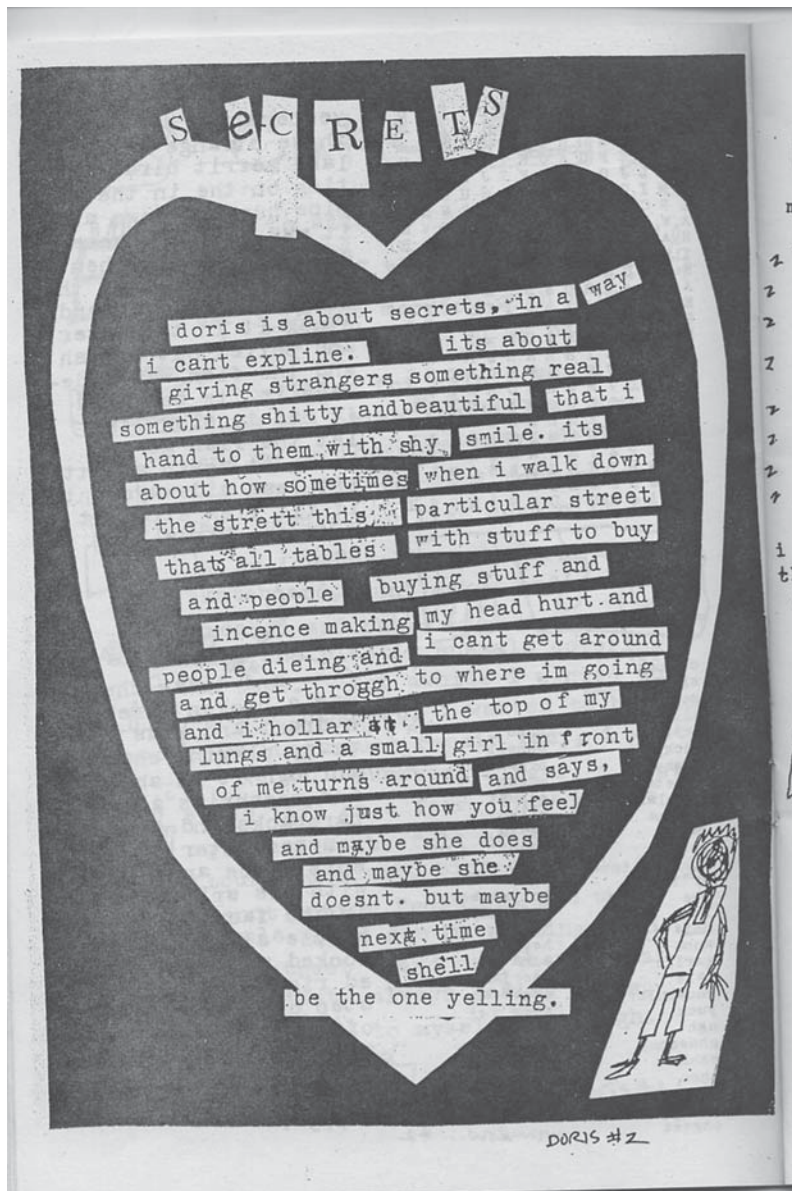 SeCRETS
doris is about secrets, in a way
i cant expline. its about
giving strangers something real
something shitty andbeautiful that i
hand to them with shy smile. its
about how sometimes when i walk down
the strett this particular street
thats all tables with stuff to buy
and people buying stuff and
incence making my head hurt.and
people dieing and i cant get around
and get throggh to where im going
and i hollar at the top of my
lungs and a small girl in front
of me turns around and says,
i know just how you feel
and maybe she does
and maybe she
doesnt. but maybe
next time
shell
be the one yelling.
DORIS #2